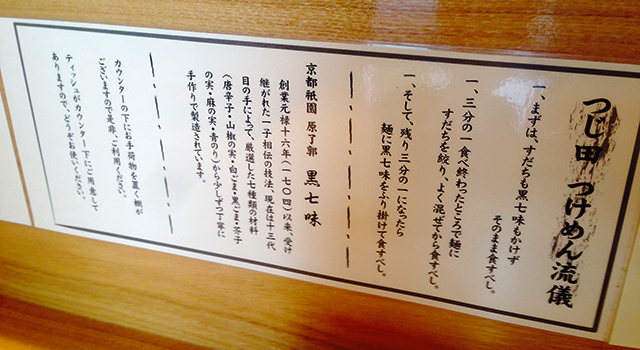 つじ田 つけめん流儀
一、まずは、すだちも黒七味もかけず
そのまま食すべし。
一、三分の一食べ終わったところで麺に
すだちを絞り、よく混ぜてから食すべし。
一、そして、残り三分の一になったら
麺に黒七味をふり掛けて食すべし。
京都祇園 原了郭 黒七味
創業元禄十六年(一七〇四)以来、受け
継がれた一子相伝の技法、現在は十三代
目の手によって厳選した七種類の材料
(唐辛子・山椒の実・白ごま・黒ごま・芥子
の実・麻の実・青のり)から少しずつ丁寧に
手作りで製造されています。
カウンターの下にお手荷物を置く棚が
ございますので是非、ご利用ください。
ティッシュがカウンター下にご用意して
ありますので、どうぞお使いください。